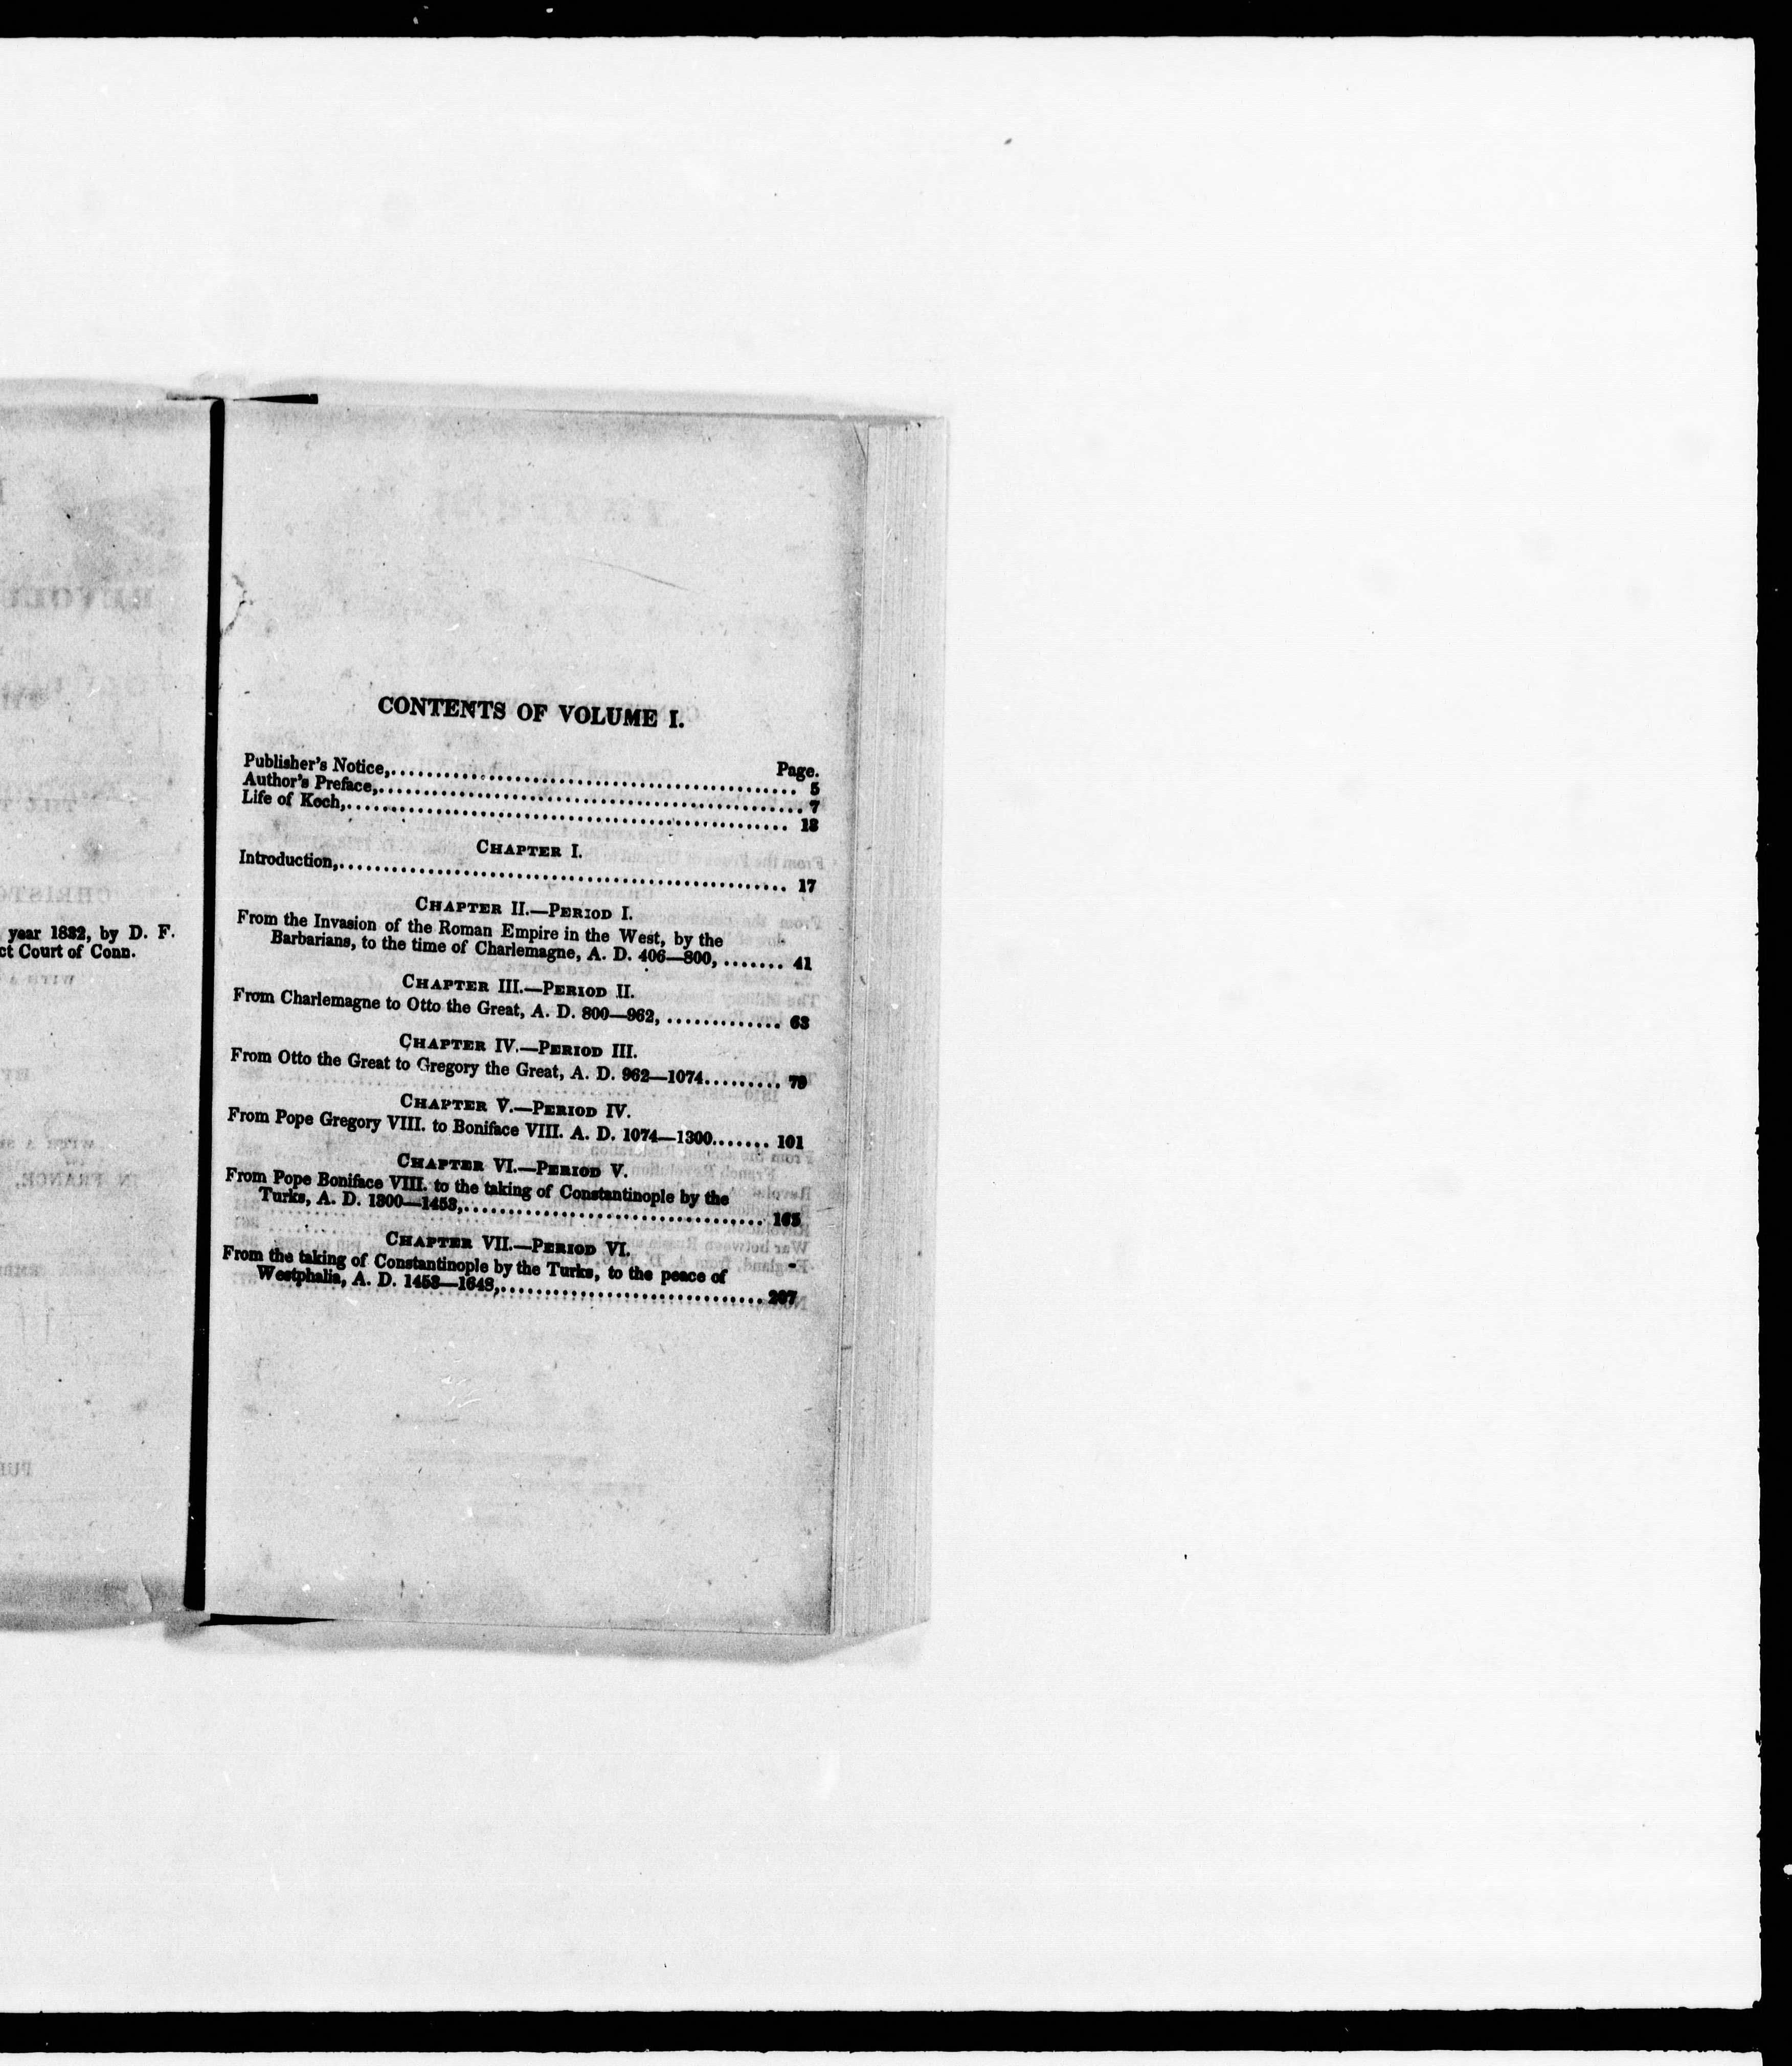 year 1832, by D. F.
ct Court of Conn.
CONTENTS OF VOLUME I.
Page.
Publisher's Notice,........ 5
Author's Preface,........ 7
Life of Koch,........ 13
CHAPTER I.
Introduction,........ 17
CHAPTER II.—PERIOD I.
From the Invasion of the Roman Empire in the West, by the
Barbarians, to the time of Charlemagne, A. D. 406—800, ....... 41
CHAPTER III.—PERIOD II.
From Charlemagne to Otto the Great, A. D. 800—962, ............. 63
CHAPTER IV.—PERIOD III.
From Otto the Great to Gregory the Great, A. D. 962—1074......... 79
CHAPTER V.—PERIOD IV.
From Pope Gregory VIII. to Boniface VIII. A. D. 1074—1300....... 101
CHAPTER VI.—PERIOD V.
From Pope Boniface VIII. to the taking of Constantinople by the
Turks, A. D. 1300—1453,........ 165
CHAPTER VII.—PERIOD VI.
From the taking of Constantinople by the Turks, to the peace of
Westphalia, A. D. 1453—1648,........ 207